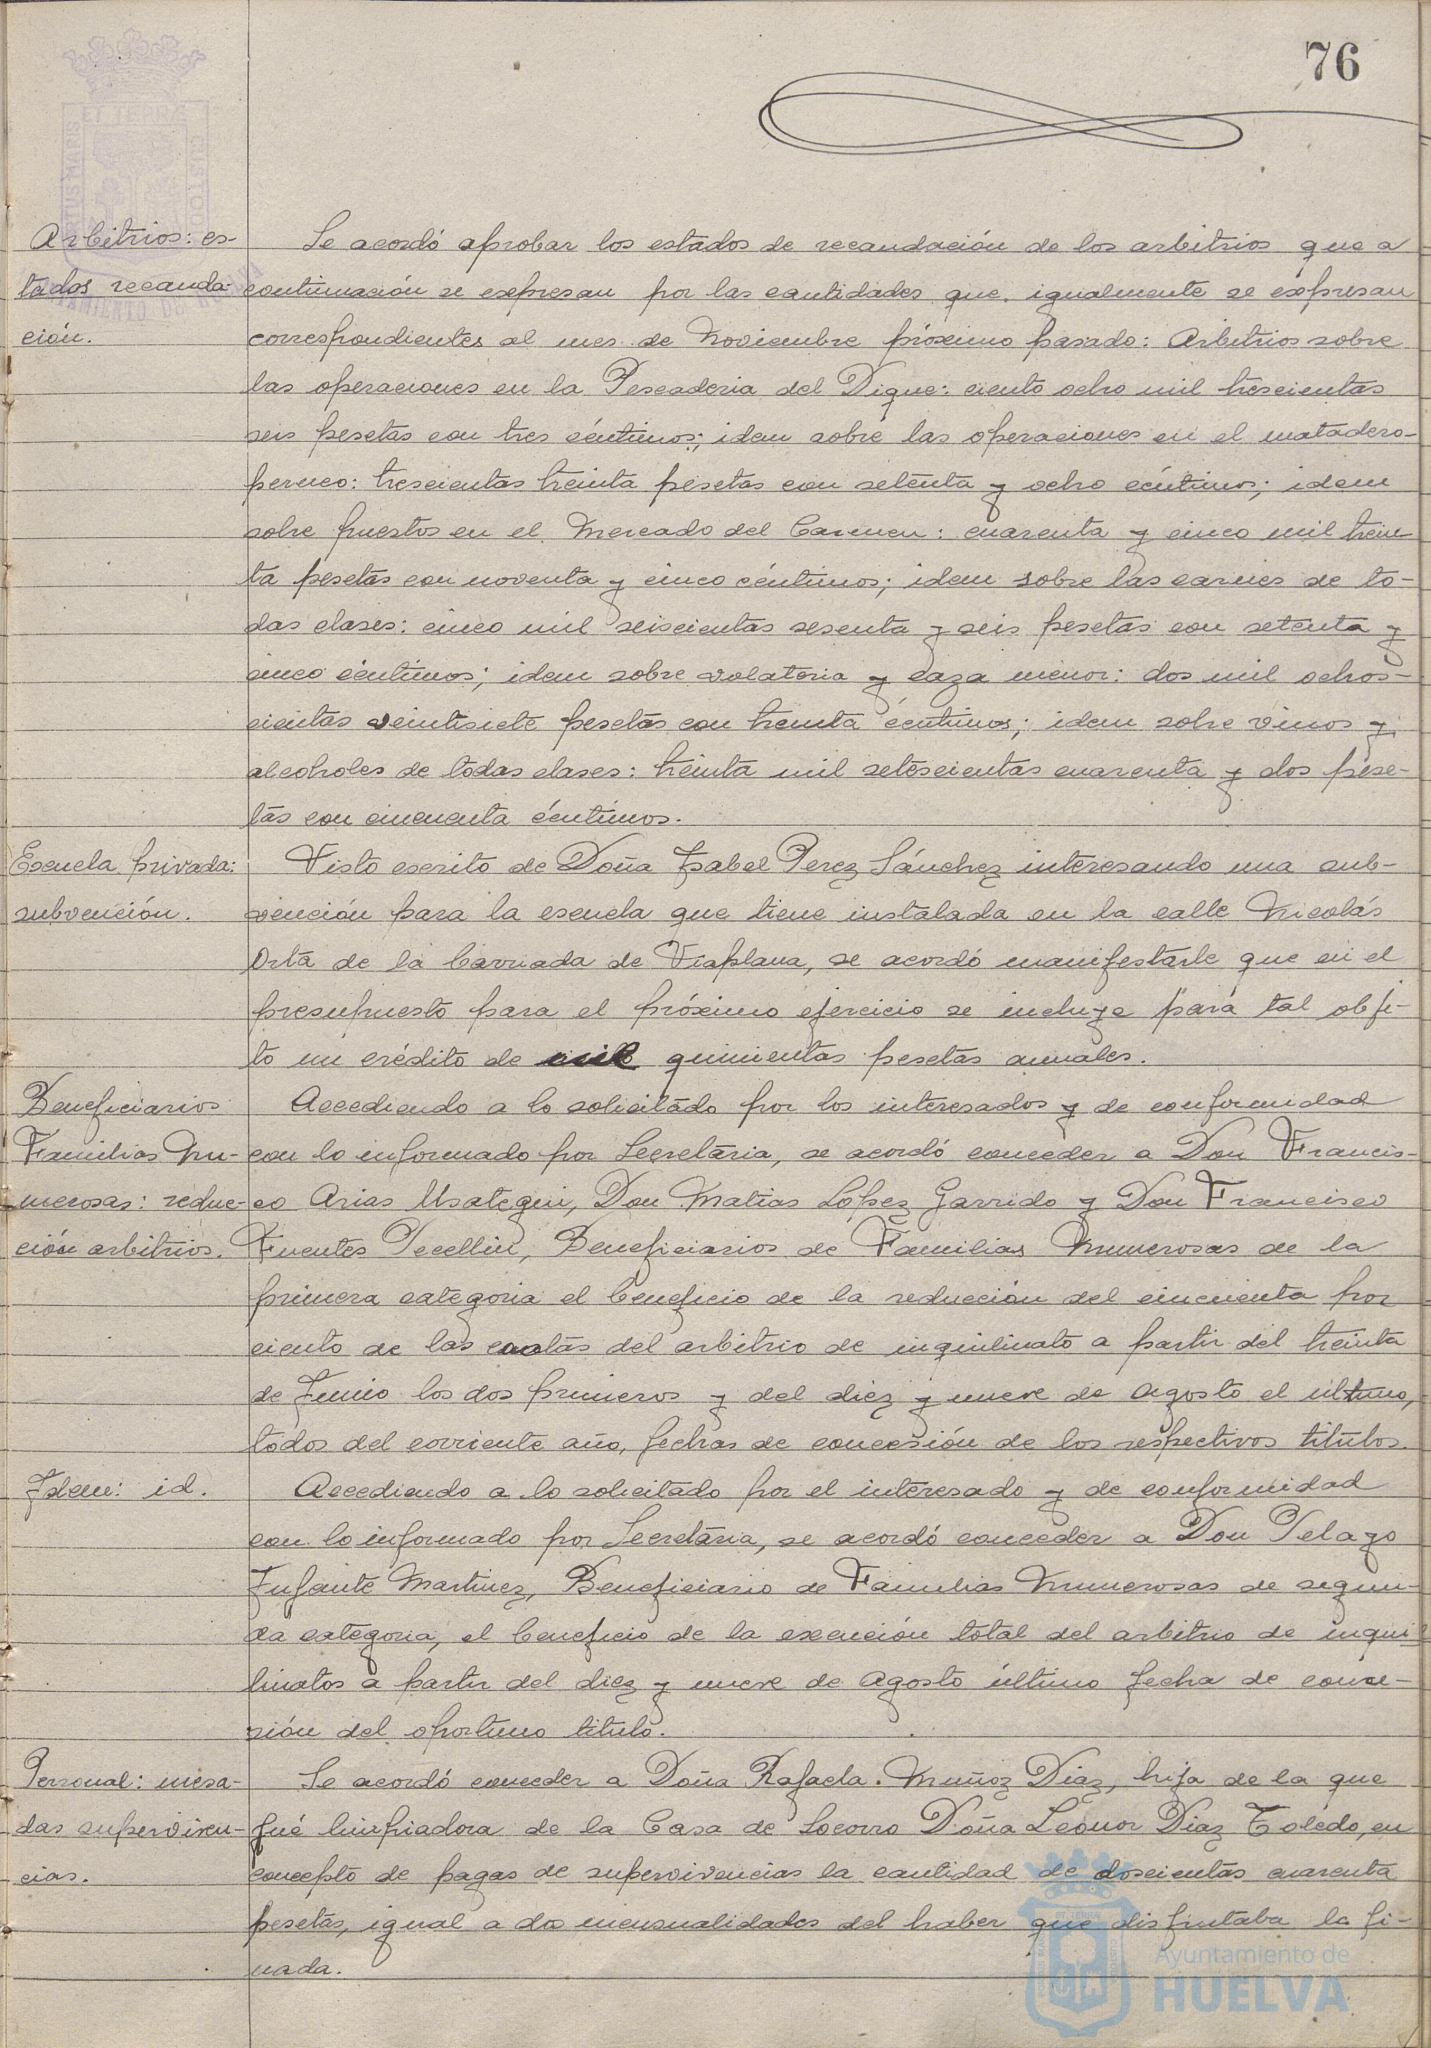 76
Arbitrios: es-
tados recauda-
ción.
Se acordó aprobar los estados de recaudación de los arbitrios que a
continuación se expresan por las cantidades que igualmente se expresan
correspondientes al mes de Noviembre próximo pasado: Arbitrios sobre
las operaciones en la Pescaderia del Dique: ciento ocho mil trescientas
seis pesetas con tres céntimos; idem sobre las operaciones en el matadero
perneo: trescientas treinta pesetas con setenta y ocho céntimos; idem
sobre puestos en el Mercado del Carmen: cuarenta y cinco mil trein-
ta pesetas con noventa y cinco céntimos; idem sobre las carnes de to-
das clases: cinco mil seiscientas sesenta y seis pesetas con setenta y
cinco céntimos; idem sobre volateria y caza menor: dos mil ochos-
cientas veintisiete pesetas con treinta céntimos; idem sobre vinos y
alcoholes de todas clases: treinta mil setescientas cuarenta y dos pese-
tas con cincuenta céntimos.
Escuela privada:
subvención.
Visto escrito de Doña Isabel Perez Sánchez interesando una sub-
vención para la escuela que tiene instalada en la calle Nicolás
Orta de la barriada de Viaplana, se acordó manifestarle que en el
presupuesto para el próximo ejercicio se incluye para tal obje-
to un crédito de quinientas pesetas anuales.
Beneficiarios
Familias Nu-
merosas: reduc-
ción arbitrios.
Accediendo a lo solicitado por los interesados y de conformidad
con lo informado por Secretaria, se acordó conceder a Don Francis-
co Arias Usategui, Don Matias López Garrido y Don Francisco
Fuentes Pecellin, Beneficiarios de Familias Numerosas de la
primera categoria el beneficio de la reducción del cincuenta por
ciento de las cuotas del arbitrio de inquilinato a partir del treinta
de Junio los dos primeros y del diez y nueve de Agosto el último,
todos del corriente año, fechas de concesión de los respectivos titulos.
Idem: id.
Accediendo a lo solicitado por el interesado y de conformidad
con lo informado por Secretaria, se acordó conceder a Don Pelayo
Infante Martinez, Beneficiario de Familias Numerosas de segun-
da categoria, el beneficio de la exención total del arbitrio de inqui-
linatos a partir del diez y nueve de Agosto último fecha de conce-
sión del oportuno titulo.
Personal: mesa-
das superviven-
cias.
Se acordó conceder a Doña Rafaela Muñoz Diaz, hija de la que
fué limpiadora de la Casa de Socorro Doña Leonor Diaz Toledo, en
concepto de pagas de supervivencias la cantidad de doscientas cuarenta
pesetas, igual a dos mensualidades del haber que disfrutaba la fi-
nada.
Ayuntamiento de
HUELVA